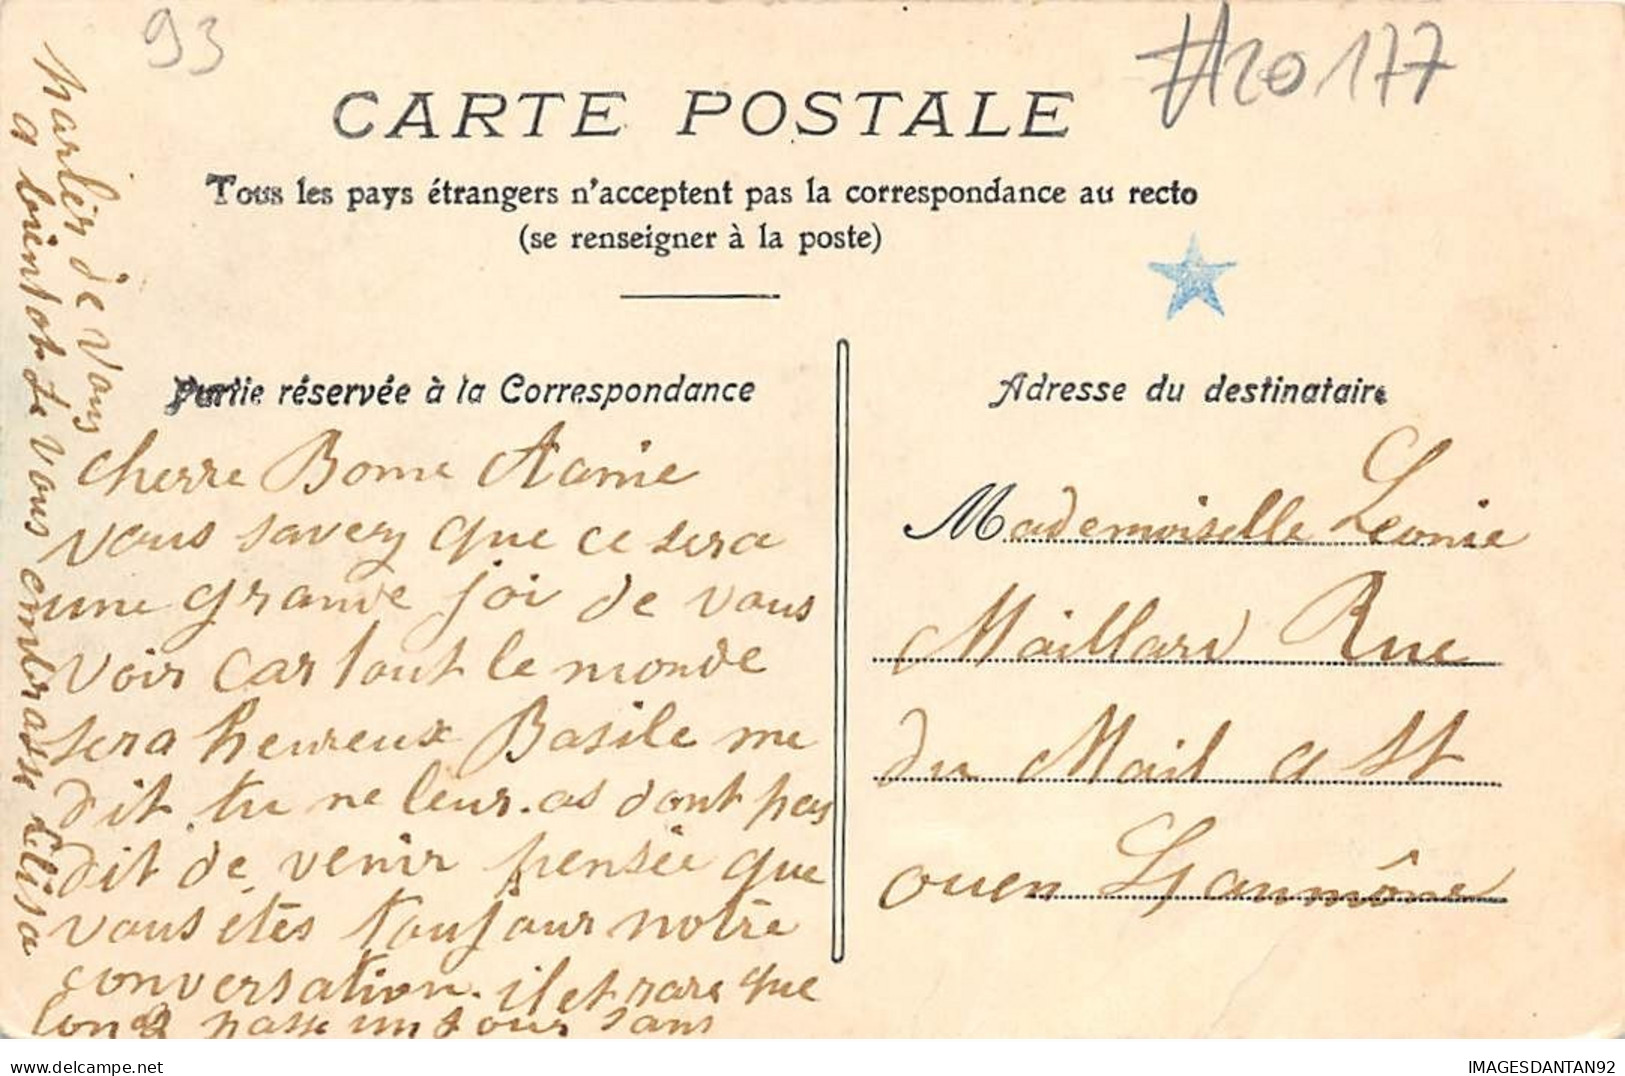 93
#20177
CARTE POSTALE
Tous les pays étrangers n'acceptent pas la correspondance au recto
(se renseigner à la poste)
Partie réservée à la Correspondance
cherre Bonne Aamie
vous savez que ce sera
une grande joi de vous
voir car tout le monde
sera heureux Basile me
dit tu ne leur as dont pas
dit de venir pensée que
vous êtes toujour notre
conversation. il et rare que
lon passe un jour sans
parler de vous
a bientot Je vous embrasse Elisa
Adresse du destinataire
Mademoiselle Leonie
Maillard Rue
du Mail a St
ouen Laumône
IMAGESDANTAN92